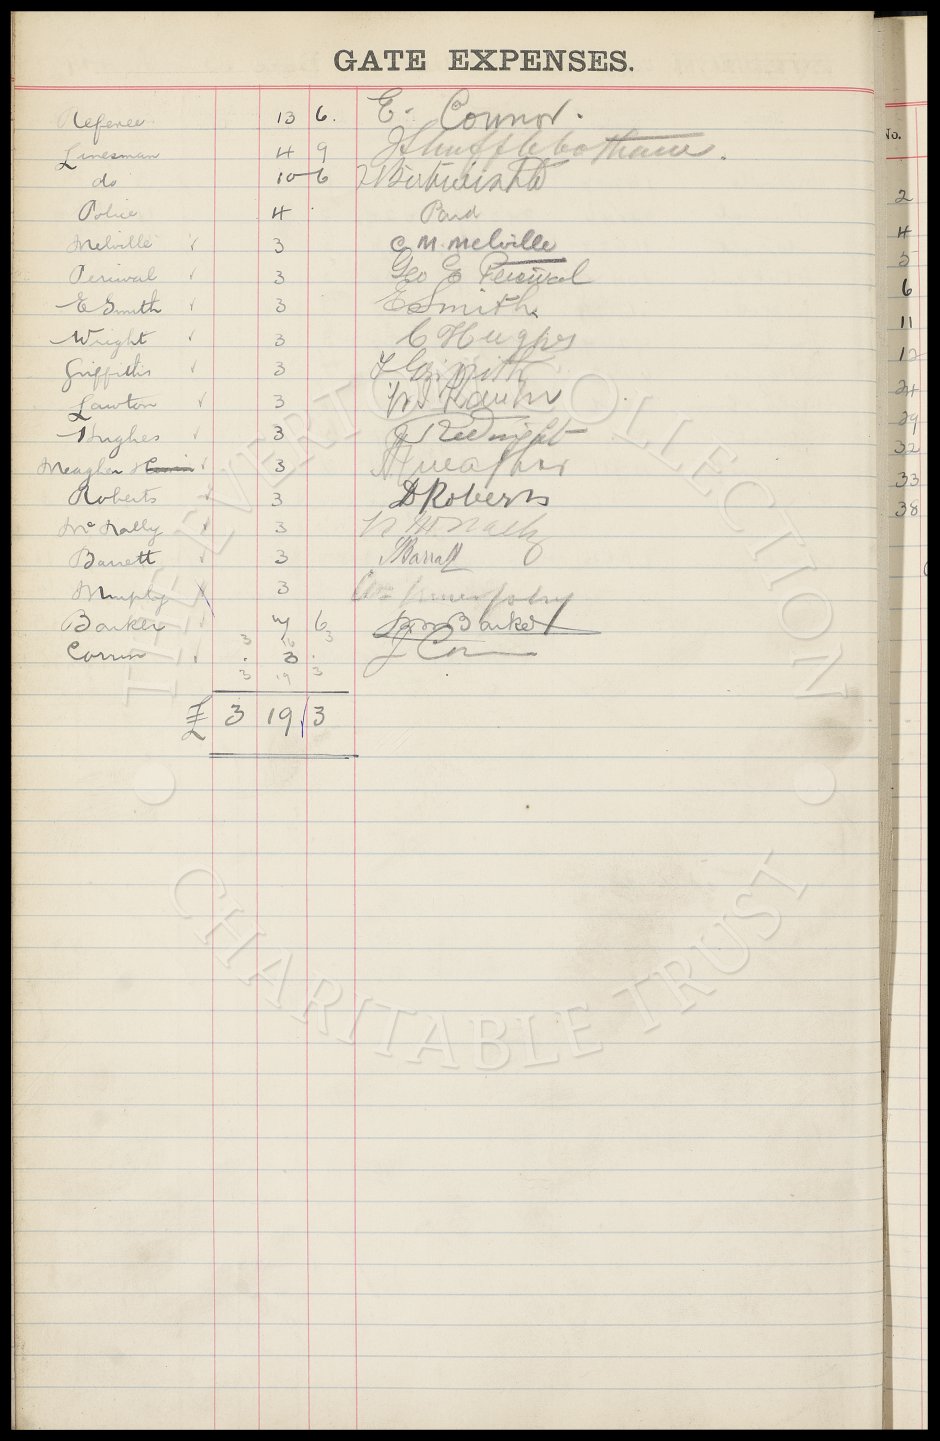 GATE EXPENSES.
Referee 13 6. E. Connor.
Linesman 4 9 J Shufflebotham.
do 10 6
Police 4 . Paid
Melville ✓ 3 C. M. Melville
Percival ✓ 3 Geo E Percival
E Smith ✓ 3 E Smith.
Wright ✓ 3 C Hughes
Griffiths ✓ 3
Lawton ✓ 3
Hughes ✓ 3
Meagher ✓ 3
Roberts ✓ 3 D Roberts
McNally ✓ 3 McNally
Barrett ✓ 3 Barratt
Murphy 3
Barker ✓ 17 6 Barker
3 16 3
Corrin . . 3 . J Cor
3 19 3
£ 3 19 3
No.
2
4
5
6
11
12
24
29
32
33
38
THE EVERTON COLLECTION
CHARITABLE TRUST